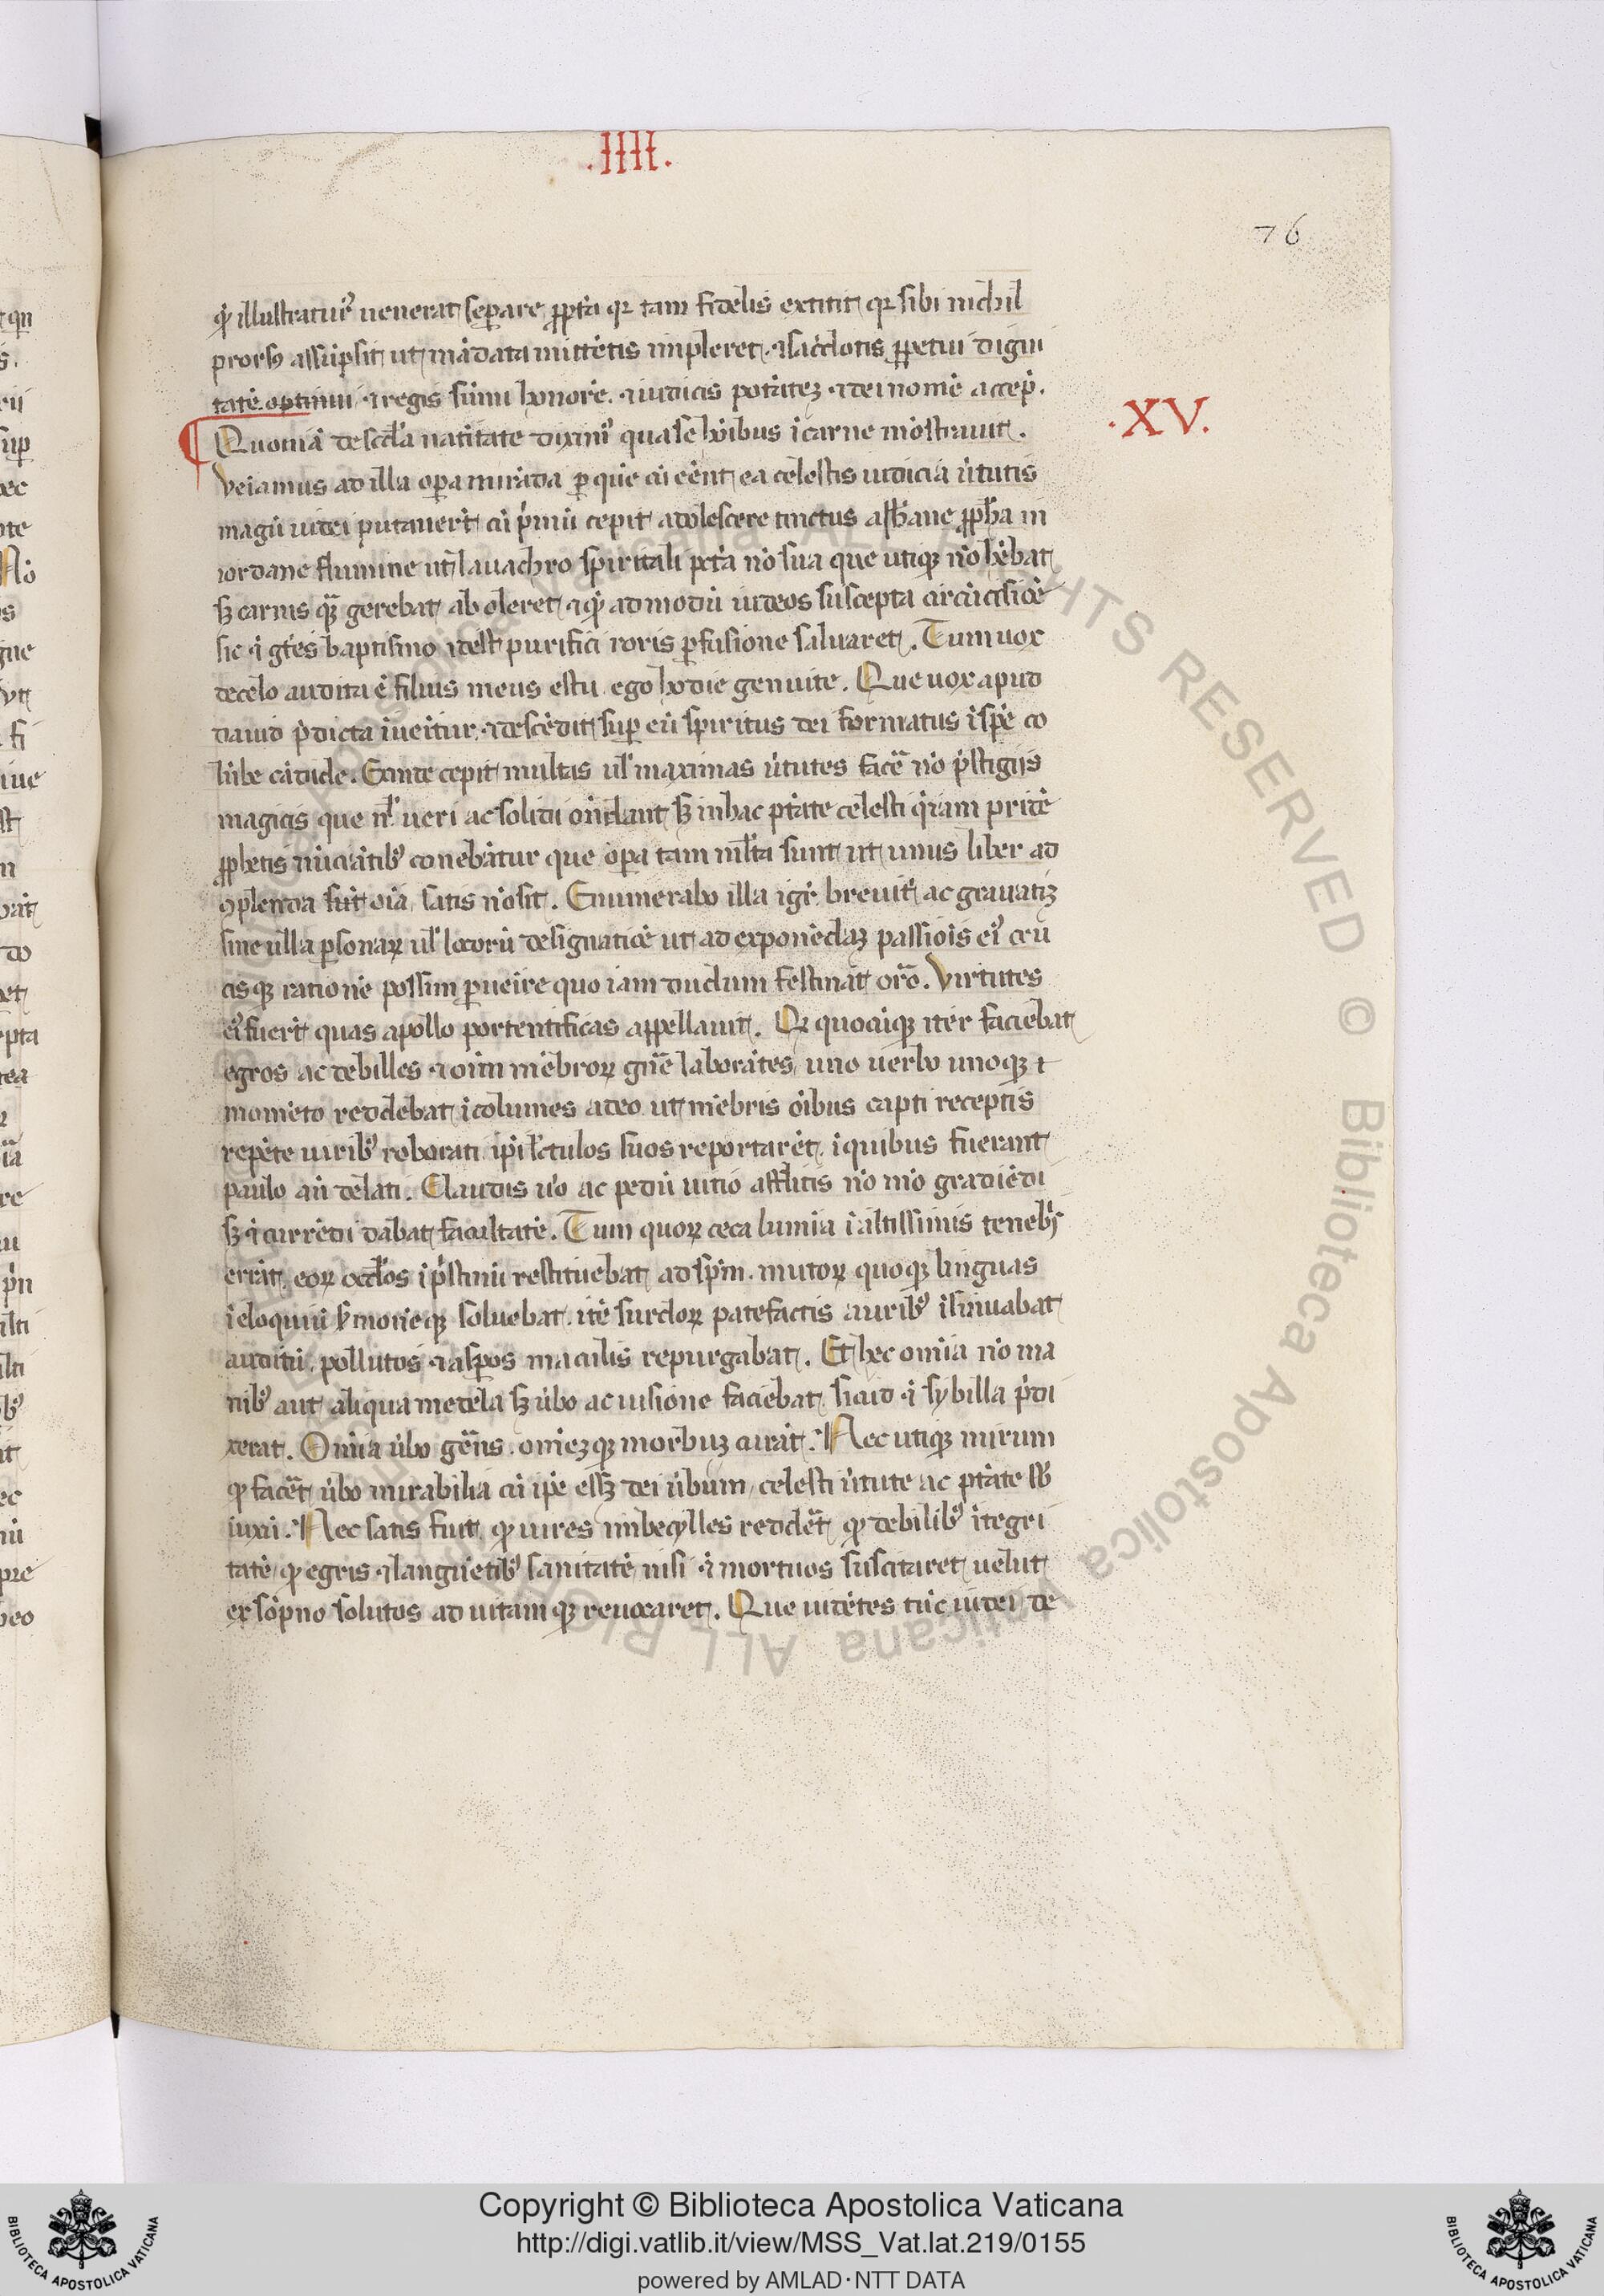 .IIII.
76
qͥ illustraturꝰ uenerat separe. ꝓpt̾a qꝛ tam fidelis extitit qꝛ sibi nichil
prorsꝰ assūpsit ut mādata mittētis impleret. ⁊ sac̾dotis ꝑpetui digni
tatē optinui ⁊ regis sūmi honorē. ⁊ iudicis potātez ⁊ dei nomē accep̾.
.XV.
¶ Quoniā de sc̄da natiītate diximꝰ qua se hoībus ī carne mōstrauit.
Veiamus ad illa oꝑa mirāda ꝑ que cū eēnt ea celestis iudicia ūtutis
magū iudei putauerūt cū pͥmū cepit adolescere tinctus a ioh̄ane ꝓph̄a in
iordane flumine ut lauachro spiritali pctā nō sua que utiqꝫ nō hēbat
sꝫ carnis quā gerebat aboleret ⁊ qͥ admodū iudeos suscepta circūcisiōe
sic ⁊ gētes baptismo id est purifici roris ꝑfusione saluaret. Tum uox
de celo audita ē filius meus es tu. ego hodie genui te. Que uox apud
dauid p̄dicta īueītur. ⁊ descēdit suꝑ eū spiritus dei formatus ī spē co
lūbe cādide. Exinde cepit multas ul̾ maximas ūtutes facē nō p̄stigijs
magicis que nl̾ ueri ac solidi oīndant sꝫ in hac ptāte celesti qͣ iam pridē
ꝓphetis nūciātibꝰ conebātur que oꝑa tam ml̄ta sunt ut unus liber ad
ꝯplenda sūt oīa satis nō sit. Enumerabo illa igr̄ breuit̾ ac grauatiꝫ
sine ulla ꝑsonaꝝ ul̾ locorū designatiōe ut ad exponēdaꝫ passiōis eiꝰ cru
cisqꝫ rationē possim ꝑueīre quo iam dudum festinat orō. Virtutes
eiꝰ fuerūt quas apollo portentificas appellauit. Qꝛ quocūqꝫ iter faciebat
egros ac debilles ⁊ oīm mēbroꝝ gn̄e laborātes, uno uerbo unoqꝫ ⁊
momēto reddebat īcolumes adeo ut mēbris oībus capti receptis
repēte uiribꝰ roborati ipī lectulos suos reportarēt. ī quibus fuerant
paulo an̄ delati. Claudis u̾o ac pedū uitio afflictis nō mō gradiēdi
sꝫ ⁊ currēdi dabat facultatē. Tum quoꝝ ceca lumīa ī altissimis tenebrꝭ
errāt eoꝝ oc̄los ī p̄stinū restituebat adspm̄. mutoꝝ quoqꝫ linguas
ī eloquiū s̾monēqꝫ soluebat. itē surdoꝝ patefactis auribꝰ īsinuabat
auditū, pollutos ⁊ asꝑsos maculis repurgabat. Et hec omīa nō ma
nibꝰ aut aliqua medela sꝫ ūbo ac iussione faciebat sicud ⁊ sybilla p̄di
xerat. Omīa ūbo gēns. omēzqꝫ morbuꝫ curāt. Nec utiqꝫ mirum
qͦ facēt ūbo mirabilia cū ipē essꝫ dei ūbum, celesti ūtute ac ptāte sb̄
iuxū. Nec satis fuit qͦ uires imbecylles reddēt qͦ debilibꝰ ītegri
tatē qͦ egris ⁊ languētibꝰ sanitatē nisi ⁊ mortuos suscitaret uelut
ex sōpno solutos ad uitamqꝫ reuocaret. Que uidētes tūc iudei de
Copyright © Biblioteca Apostolica Vaticana
http://digi.vatlib.it/view/MSS_Vat.lat.219/0155
powered by AMLAD·NTT DATA